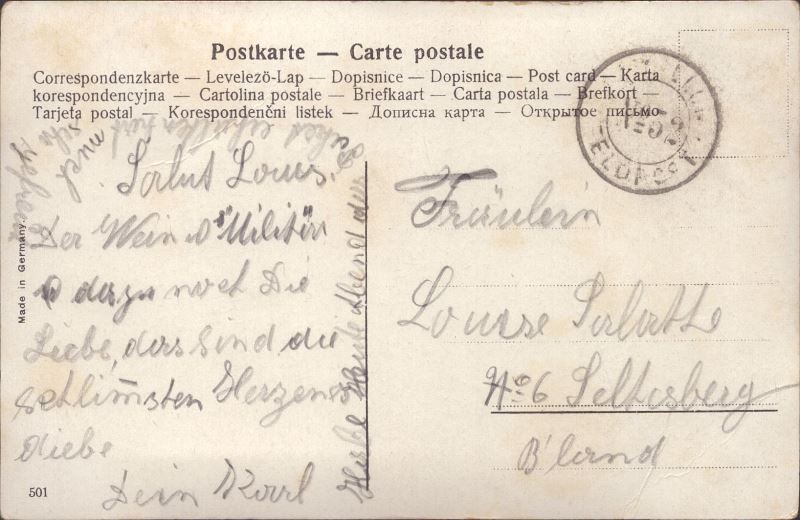 Postkarte — Carte postale
Correspondenzkarte — Levelező-Lap — Dopisnice — Dopisnica — Post card — Karta
korespondencyjna — Cartolina postale — Briefkaart — Carta postala — Brefkort —
Tarjeta postal — Korespondenční listek — Дописна карта — Открытое письмо
Salut Louis.
Der Wein s' Militär
u dazu noch Die
Liebe, das sind die
schlim̅sten Herzens
diebe
Dein Karl
Heute Abend
und
Made in Germany.
501
Fräulein
Louise
No 6 Seltisberg
B'land